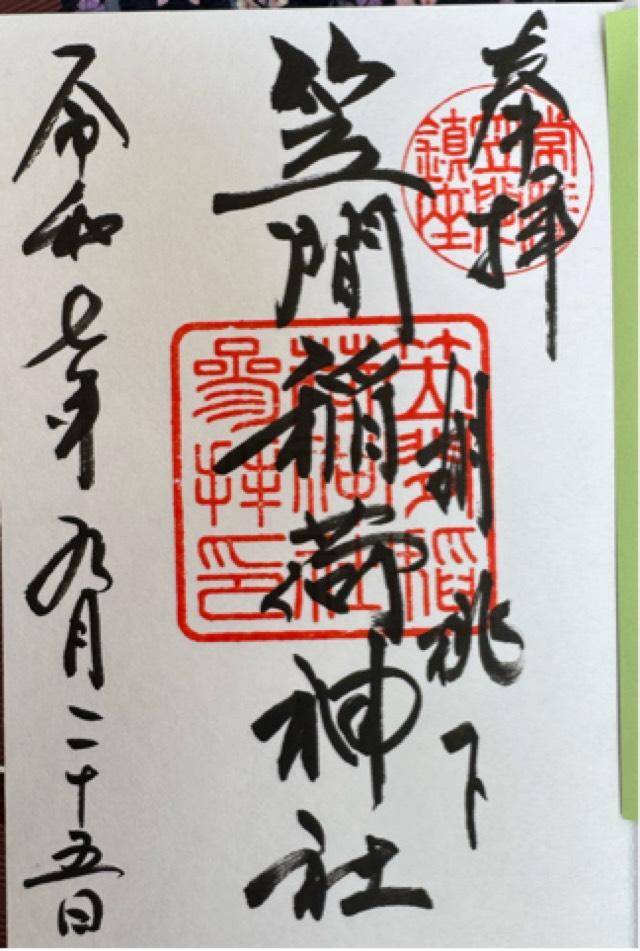 奉拝
常陸
笠間
鎮座
胡桃下
笠間稲荷神社
笠間稲
荷神社
参拝印
令和七年九月二十五日